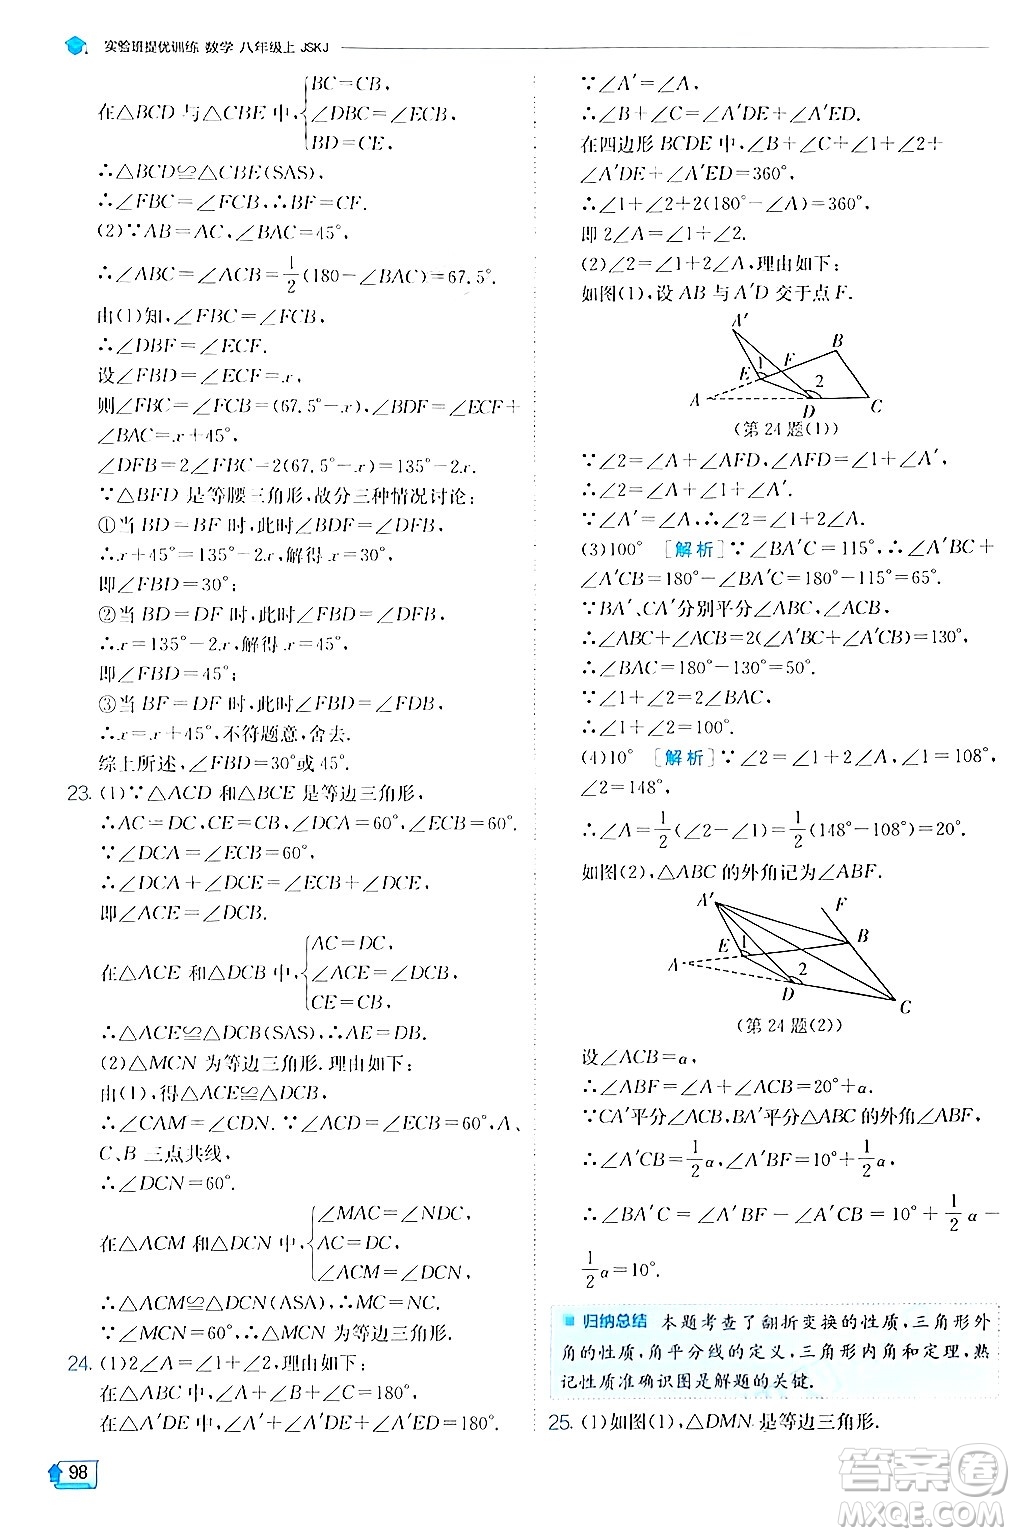 实验班提优训练 数学 八年级上 JSKJ
在△BCD 与△CBE 中,{BC=CB, ∠DBC=∠ECB, BD=CE,
∴△BCD≌△CBE(SAS).
∴∠FBC=∠FCB,∴BF=CF.
(2)∵AB=AC,∠BAC=45°,
∴∠ABC=∠ACB=1/2(180-∠BAC)=67.5°.
由(1)知,∠FBC=∠FCB,
∴∠DBF=∠ECF.
设∠FBD=∠ECF=x,
则∠FBC=∠FCB=(67.5°-x),∠BDF=∠ECF+
∠BAC=x+45°,
∠DFB=2∠FBC=2(67.5°-x)=135°-2x.
∵△BFD 是等腰三角形,故分三种情况讨论:
①当 BD=BF 时,此时∠BDF=∠DFB,
∴x+45°=135°-2x,解得 x=30°,
即∠FBD=30°;
②当 BD=DF 时,此时∠FBD=∠DFB,
∴x=135°-2x,解得 x=45°,
即∠FBD=45°;
③当 BF=DF 时,此时∠FBD=∠FDB,
∴x=x+45°,不符题意,舍去.
综上所述,∠FBD=30°或45°.
23. (1)∵△ACD 和△BCE 是等边三角形,
∴AC=DC,CE=CB,∠DCA=60°,∠ECB=60°.
∵∠DCA=∠ECB=60°,
∴∠DCA+∠DCE=∠ECB+∠DCE,
即∠ACE=∠DCB.
在△ACE 和△DCB 中,{AC=DC, ∠ACE=∠DCB, CE=CB,
∴△ACE≌△DCB(SAS),∴AE=DB.
(2)△MCN 为等边三角形.理由如下:
由(1),得△ACE≌△DCB,
∴∠CAM=∠CDN.∵∠ACD=∠ECB=60°,A、
C、B 三点共线,
∴∠DCN=60°.
在△ACM 和△DCN 中,{∠MAC=∠NDC, AC=DC, ∠ACM=∠DCN,
∴△ACM≌△DCN(ASA),∴MC=NC.
∵∠MCN=60°,∴△MCN 为等边三角形.
24. (1)2∠A=∠1+∠2,理由如下:
在△ABC 中,∠A+∠B+∠C=180°,
在△A′DE 中,∠A′+∠A′DE+∠A′ED=180°,
98
∵∠A′=∠A,
∴∠B+∠C=∠A′DE+∠A′ED.
在四边形 BCDE 中,∠B+∠C+∠1+∠2+
∠A′DE+∠A′ED=360°,
∴∠1+∠2+2(180°-∠A)=360°,
即 2∠A=∠1+∠2.
(2)∠2=∠1+2∠A,理由如下:
如图(1),设 AB 与 A′D 交于点 F.
A′ B F 1 E 2 A D C
(第 24 题(1))
∵∠2=∠A+∠AFD,∠AFD=∠A′+∠1,
∴∠2=∠A+∠A′+∠1.
∵∠A′=∠A,∴∠2=2∠A+∠1.
(3)100° [解析]∵∠BA′C=115°,∴∠A′BC+
∠A′CB=180°-∠BA′C=180°-115°=65°.
∵BA′、CA′分别平分∠ABC、∠ACB,
∴∠ABC+∠ACB=2(∠A′BC+∠A′CB)=130°,
∴∠BAC=180°-130°=50°.
∵∠1+∠2=2∠BAC,
∴∠1+∠2=100°.
(4)10° [解析]∵∠2=∠1+2∠A,∠1=108°,
∠2=148°,
∴∠A=1/2(∠2-∠1)=1/2(148°-108°)=20°.
如图(2),△ABC 的外角记为∠ABF.
A′ F B E 1 A 2 D C
(第 24 题(2))
设∠ACB=α,
∴∠ABF=∠A+∠ACB=20°+α.
∵CA′平分∠ACB,BA′平分△ABC 的外角∠ABF,
∴∠A′CB=1/2α,∠A′BF=10°+1/2α,
∴∠BA′C=∠A′BF-∠A′CB=10°+1/2α-
1/2α=10°.
归纳总结 本题考查了翻折变换的性质,三角形外
角的性质,角平分线的定义,三角形内角和定理,熟
记性质准确识图是解题的关键.
25. (1)如图(1),△DMN 是等边三角形.
作业精灵
MXQE.COM